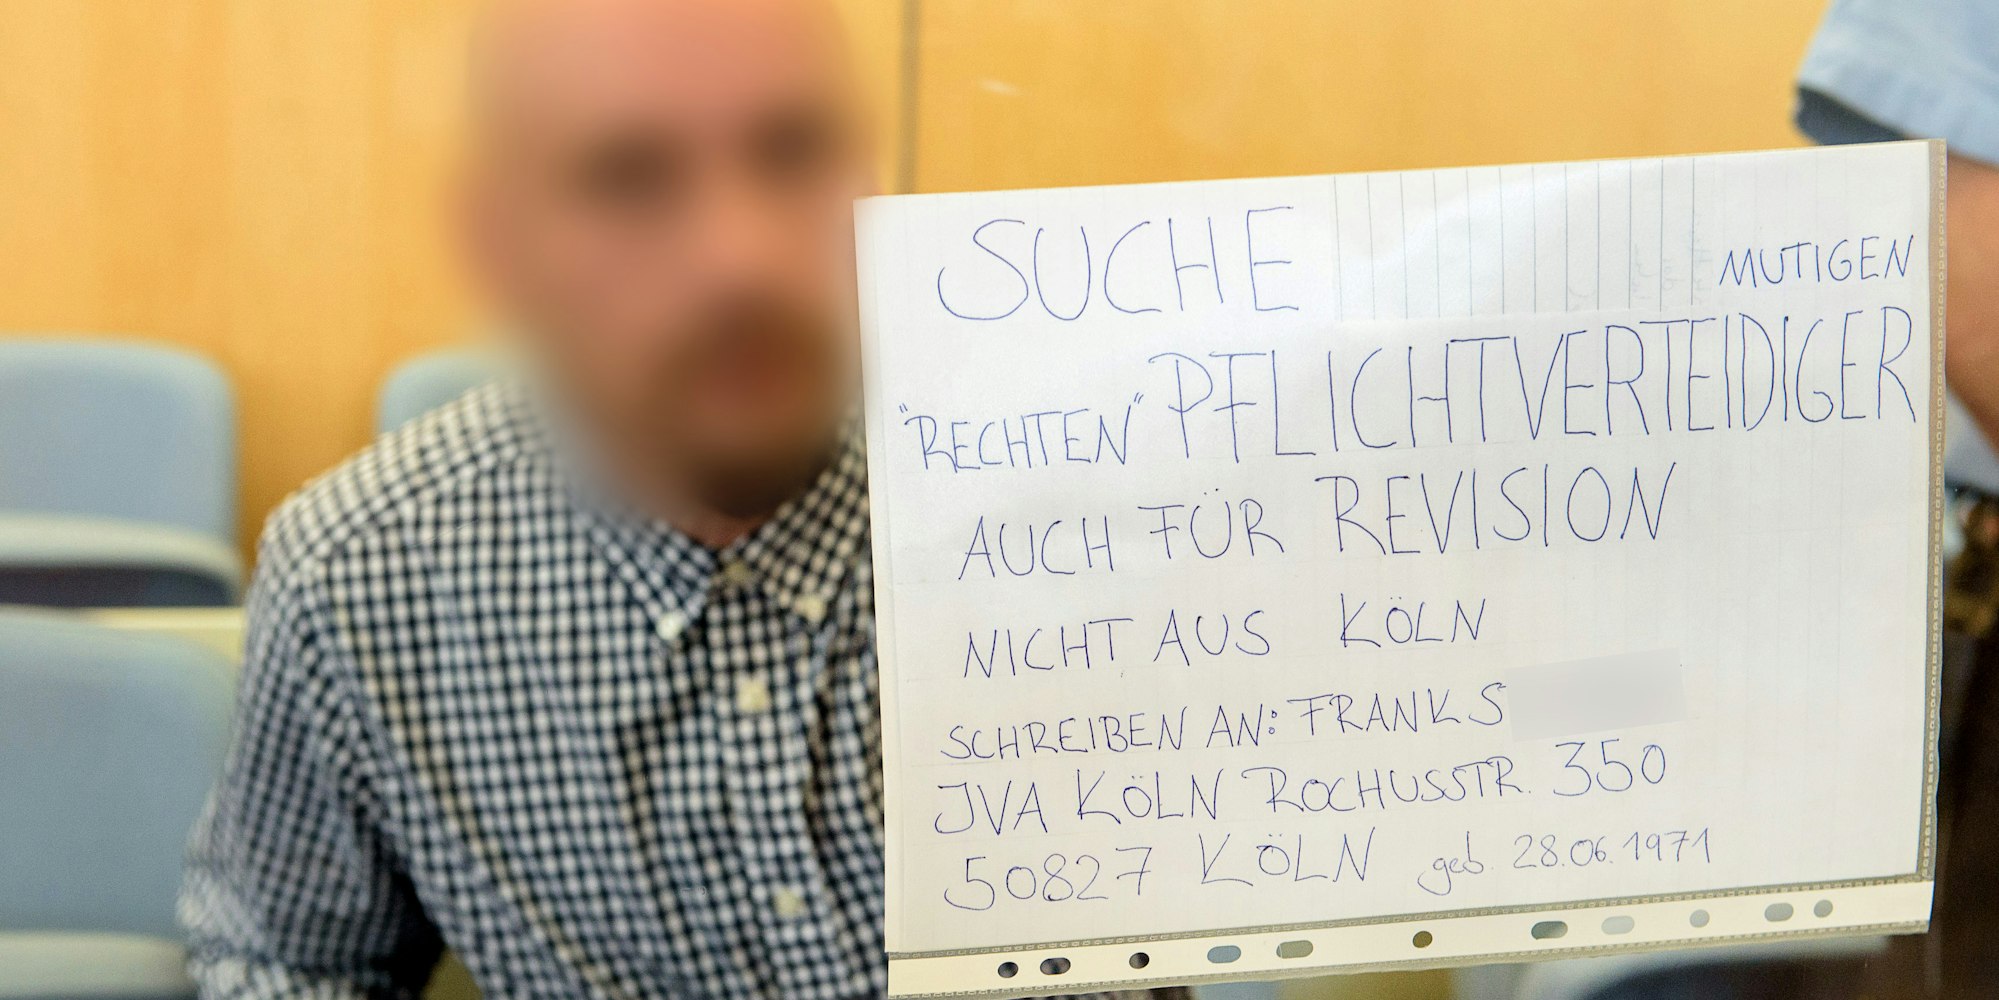 SUCHE MUTIGEN
"RECHTEN" PFLICHTVERTEIDIGER
AUCH FÜR REVISION
NICHT AUS KÖLN
SCHREIBEN AN: FRANK S
JVA KÖLN ROCHUSSTR. 350
50827 KÖLN geb. 28.06.1971